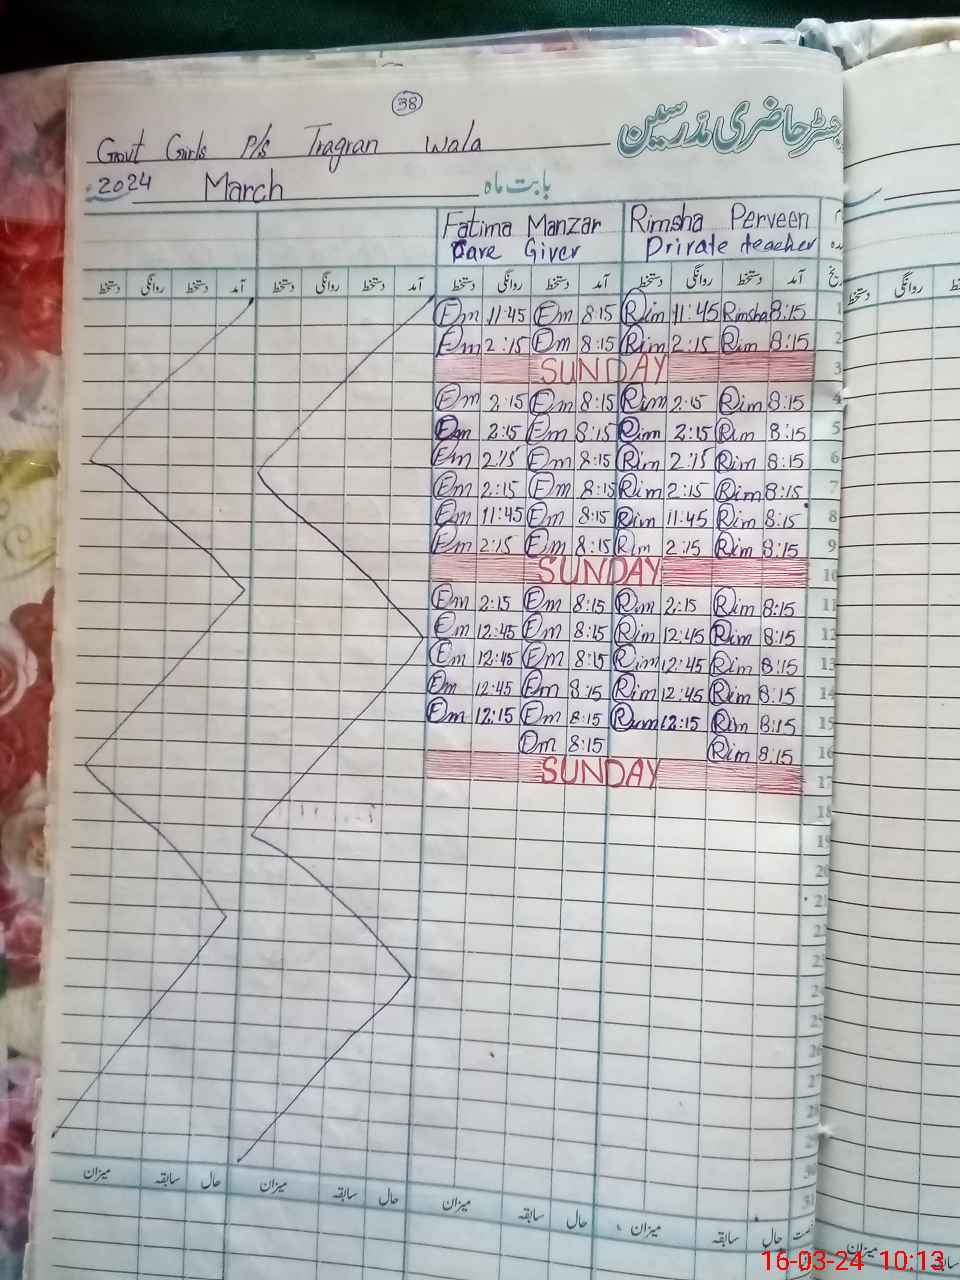 38
رجسٹر حاضری مدرسین
Govt Girls P/s Tragran Wala
2024 March بابت ماہ
Fatima Manzar Rimsha Perveen
Care Giver Private teacher
دستخط روانگی دستخط آمد دستخط روانگی دستخط آمد دستخط روانگی دستخط آمد دستخط روانگی دستخط آمد
Em 11:45 Em 8:15 Rim 11:45 Rimsha 8:15 1
Em 2:15 Em 8:15 Rim 2:15 Rim 8:15 2
SUNDAY 3
Em 2:15 Em 8:15 Rim 2:15 Rim 8:15 4
Em 2:15 Em 8:15 Rim 2:15 Rim 8:15 5
Em 2:15 Em 8:15 Rim 2:15 Rim 8:15 6
Em 2:15 Em 8:15 Rim 2:15 Rim 8:15 7
Em 11:45 Em 8:15 Rim 11:45 Rim 8:15 8
Em 2:15 Em 8:15 Rim 2:15 Rim 8:15 9
SUNDAY 10
Em 2:15 Em 8:15 Rim 2:15 Rim 8:15 11
Em 12:45 Em 8:15 Rim 12:45 Rim 8:15 12
Em 12:45 Em 8:15 Rim 12:45 Rim 8:15 13
Em 12:45 Em 8:15 Rim 12:45 Rim 8:15 14
Em 12:15 Em 8:15 Rim 12:15 Rim 8:15 15
Em 8:15 Rim 8:15 16
SUNDAY 17
18
19
20
21
22
23
24
25
26
27
28
29
30
31
میزان سابقہ حال میزان سابقہ حال میزان سابقہ حال میزان سابقہ حال
دستخط روانگی
میزان سابقہ
16-03-24 10:13